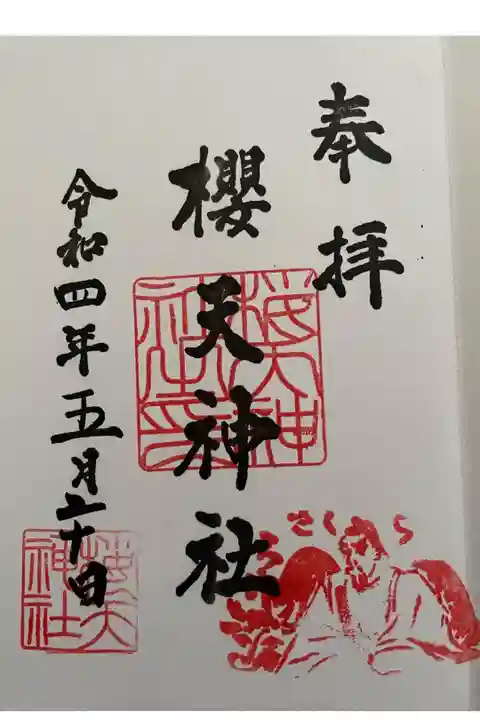 奉拝
櫻天神社
令和四年五月二十日
桜天神社印
桜天神社
さくら